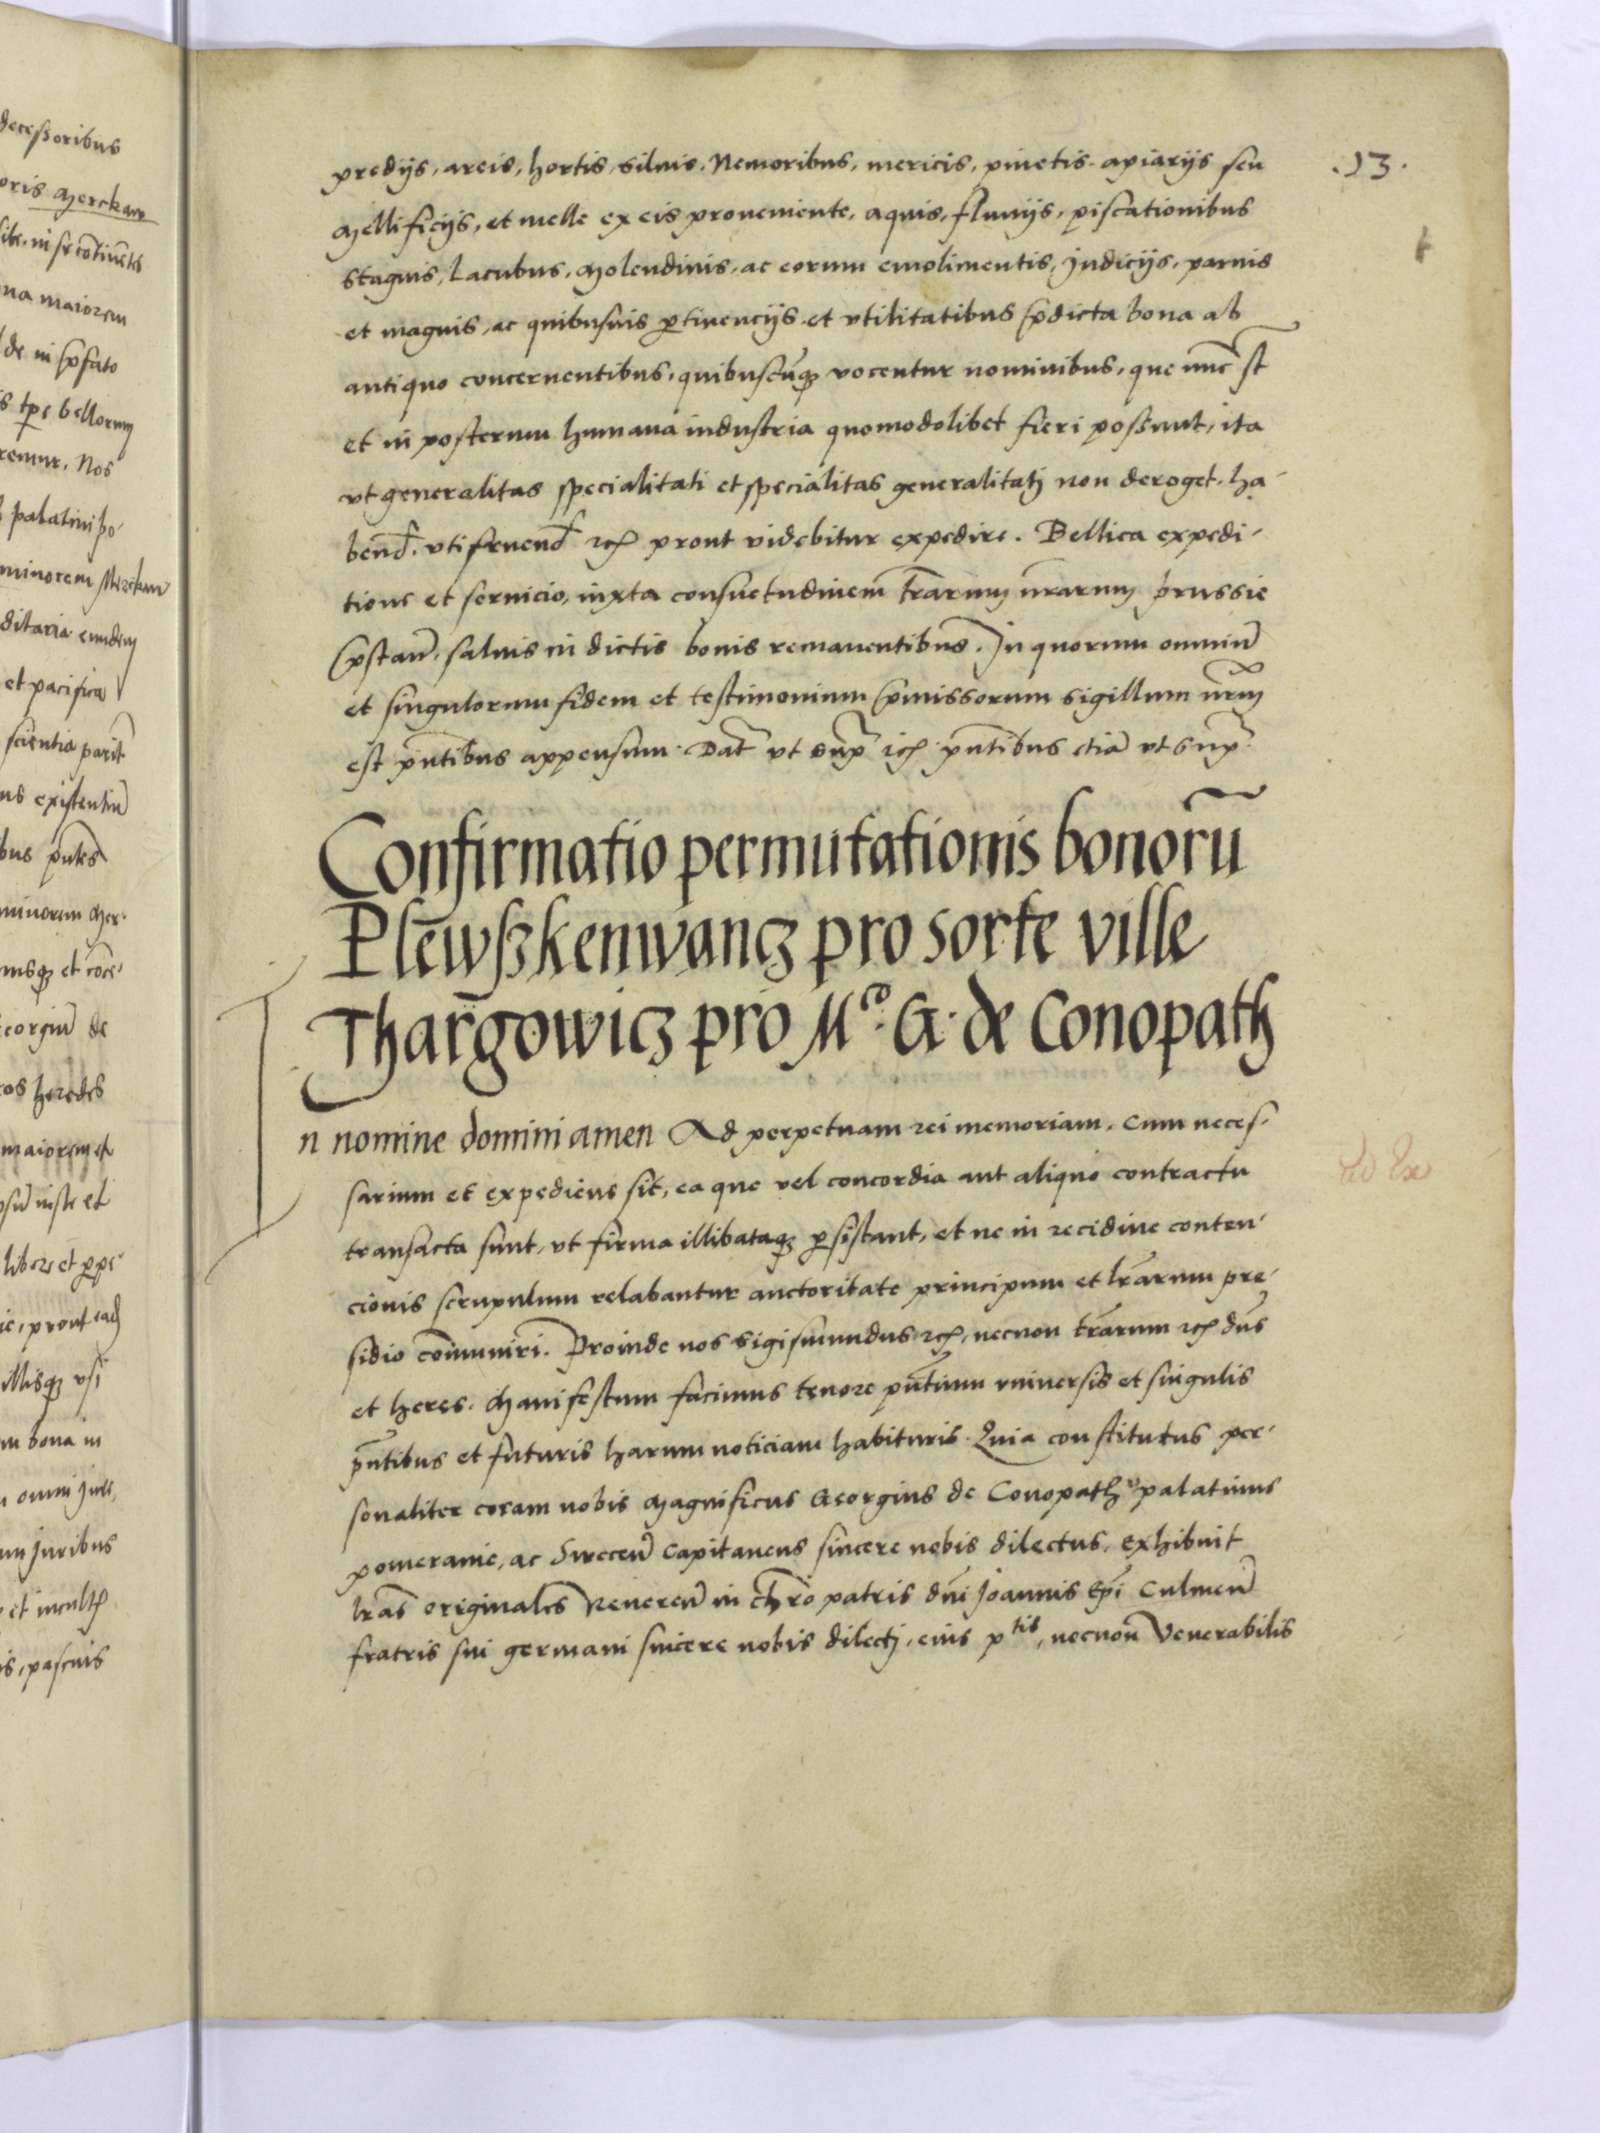 .13.
predijs, areis, hortis, siluis, Nemoribus, mericis, pinetis. apiarijs seu
Mellificijs, et melle ex eis proueniente, aquis, fluuijs, piscationibus
Stagnis, Lacubus, Molendinis, ac eorum emolimentis, Judicijs, paruis
et magnis, ac quibusuis ptinencijs et vtilitatibus pdicta bona ab
antiquo concernentibus, quibuscũqȝ vocentur nominibus, que nũc st̃
et in posterum humana industria quomodolibet fieri possunt, ita
vt generalitas specialitati et specialitas generalitatj non deroget. ha-
bend. vtifruend rcȝ prout videbitur expedire. Bellica expedi-
tione et seruicio, iuxta consuetudinem tr̃arum nr̃arum prussie
pstañ, saluis in dictis bonis remanentibus. In quorum omniũ
et singulorum fidem et testimonium pmissorum sigillum nr̃m
est pñtibus appensum. Dat̃ vt sup̃ rcȝ pñtibus etiã vt sup̃.
Confirmatio permutationis bonorũ
Plẽwßkenwancȝ pro sorte ville
Thargowicȝ pro Mco. G. de Conopath
In nomine domini amen Ad perpetuam rei memoriam. Cum neces-
sarium et expediens sit, ea que vel concordia aut aliquo contractu
transacta sunt, vt firma illibataqȝ psistant, et ne in recidiue conten-
cionis scrupulum relabantur auctoritate principum et lr̃arum pre-
sidio com̃uniri. Proinde nos Sigismundus rcȝ, necnon tr̃arum rcȝ dñs
et heres. Manifestum facimus tenore pñtium vniuersis et singulis
pñtibus et futuris harum noticiam habituris. Quia constitutus per-
sonaliter coram nobis Magnificus Georgius de Conopath palatinus
pomeranie, ac Sweceñ Capitaneus sincere nobis dilectus, exhibuit
lr̃as originales Reuereñ in chr̃o patris dñi Joannis Ep̃i Culmeñ
fratris sui germani sincere nobis dilectj, eius ptis, necnon Venerabilis